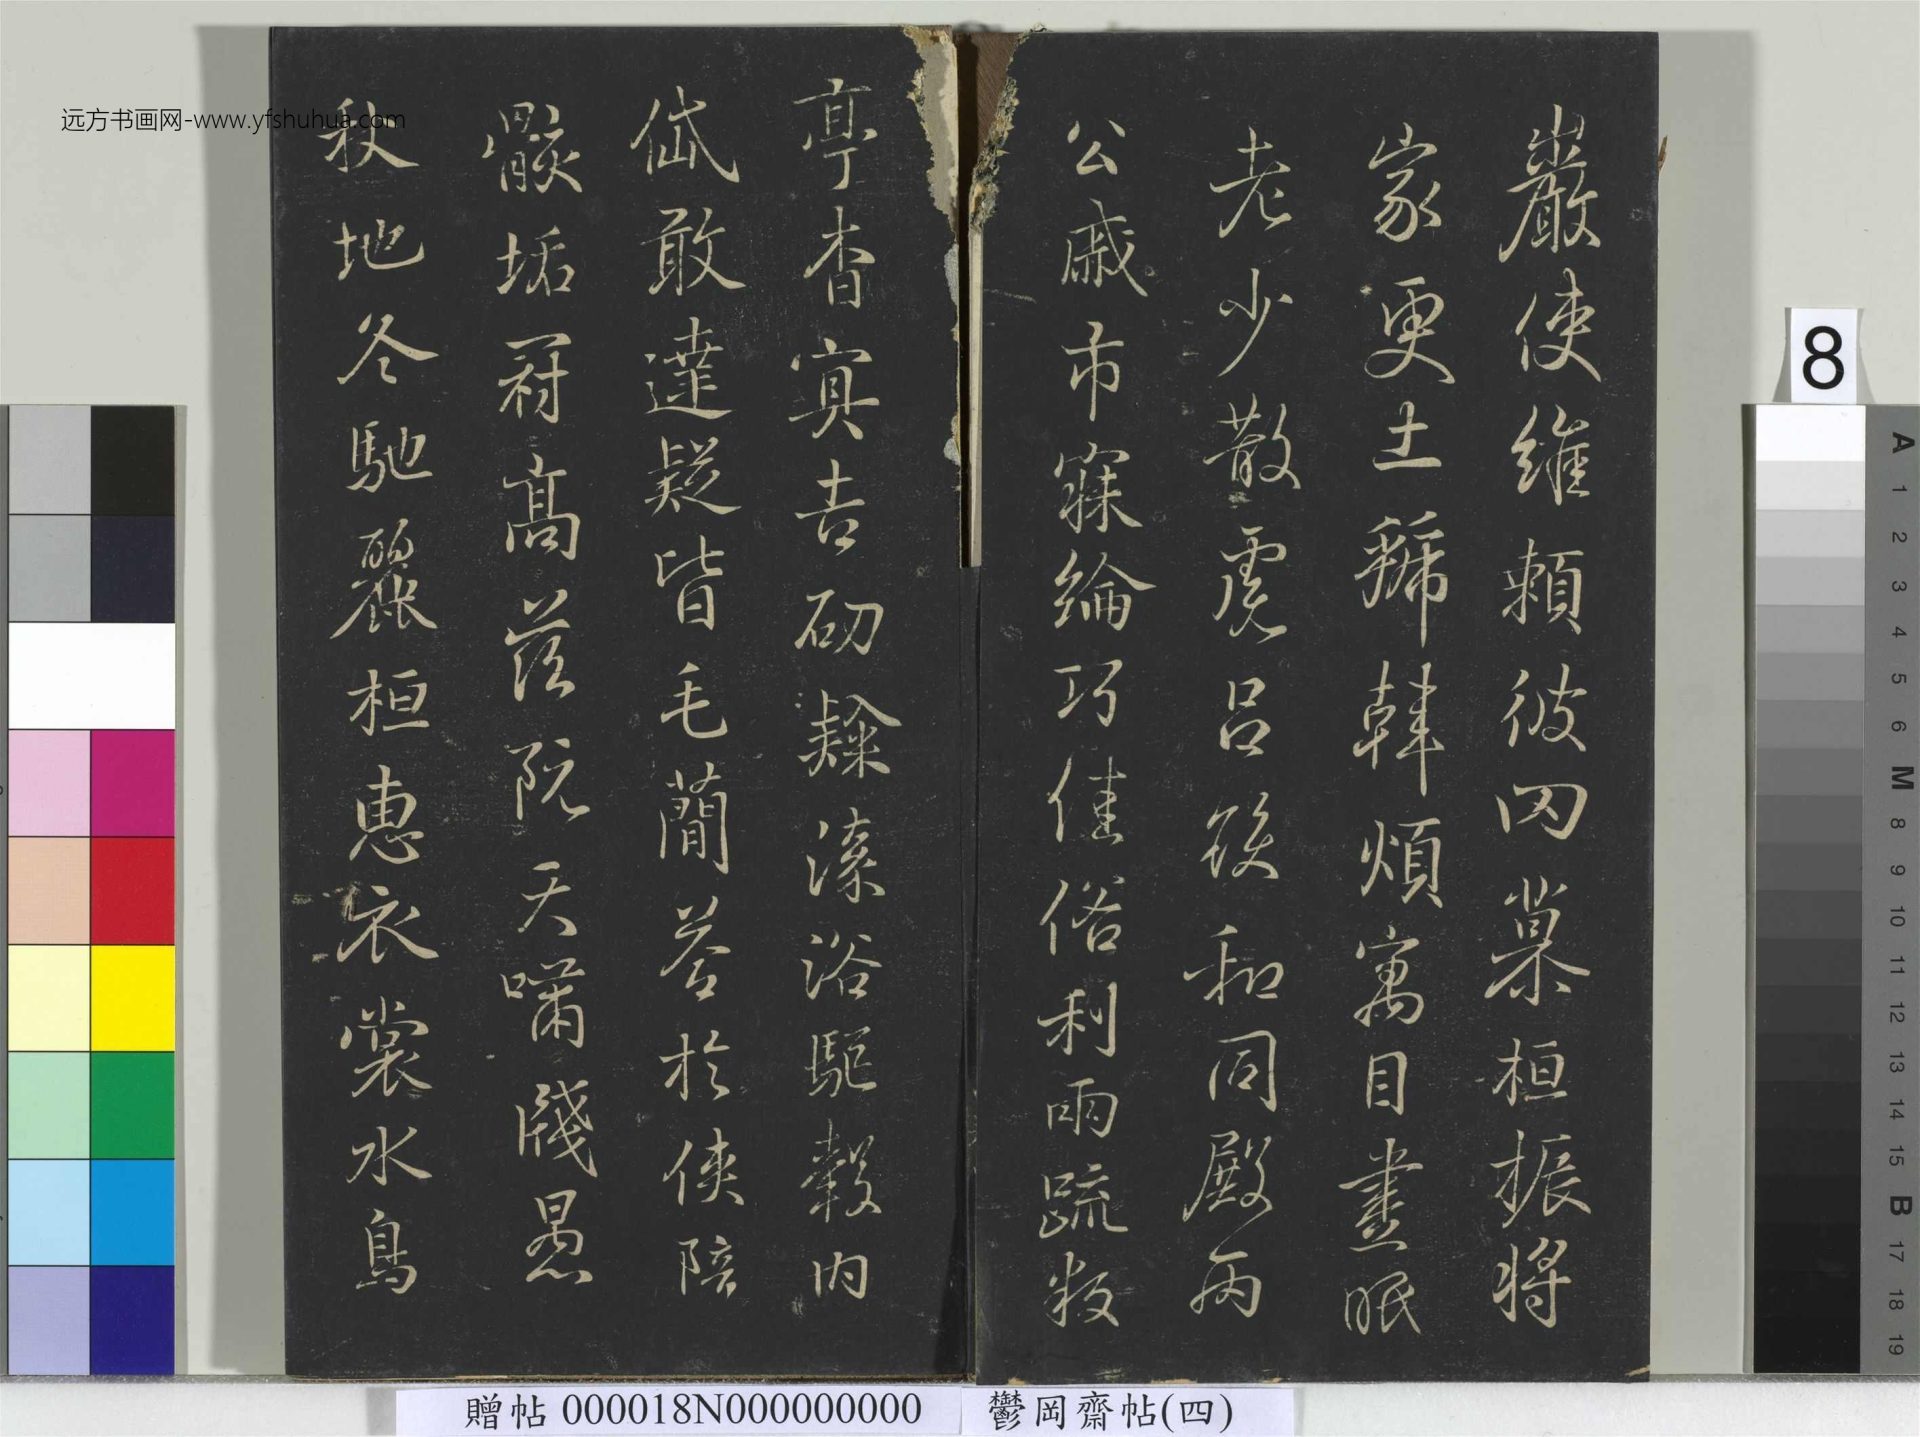 巖使維頼彼巢桓振將
家更土韓煩寓目晝眠
老少散呂和同殿丙
公戚市寐綸巧佳俗利雨疏
亭杳冥吉砌漆浴驅轂内
岱敢達疑皆毛簡答於俠陪
骸垢冠高落阮天嘯牋愚
秋地冬馳麗桓惠衣裳水鳥
远方书画网-www.yfshuhua.com
8
A
1
2
3
4
5
6
M
8
9
10
11
12
13
14
15
B
17
18
19
贈帖 000018N000000000
鬱岡齋帖(四)